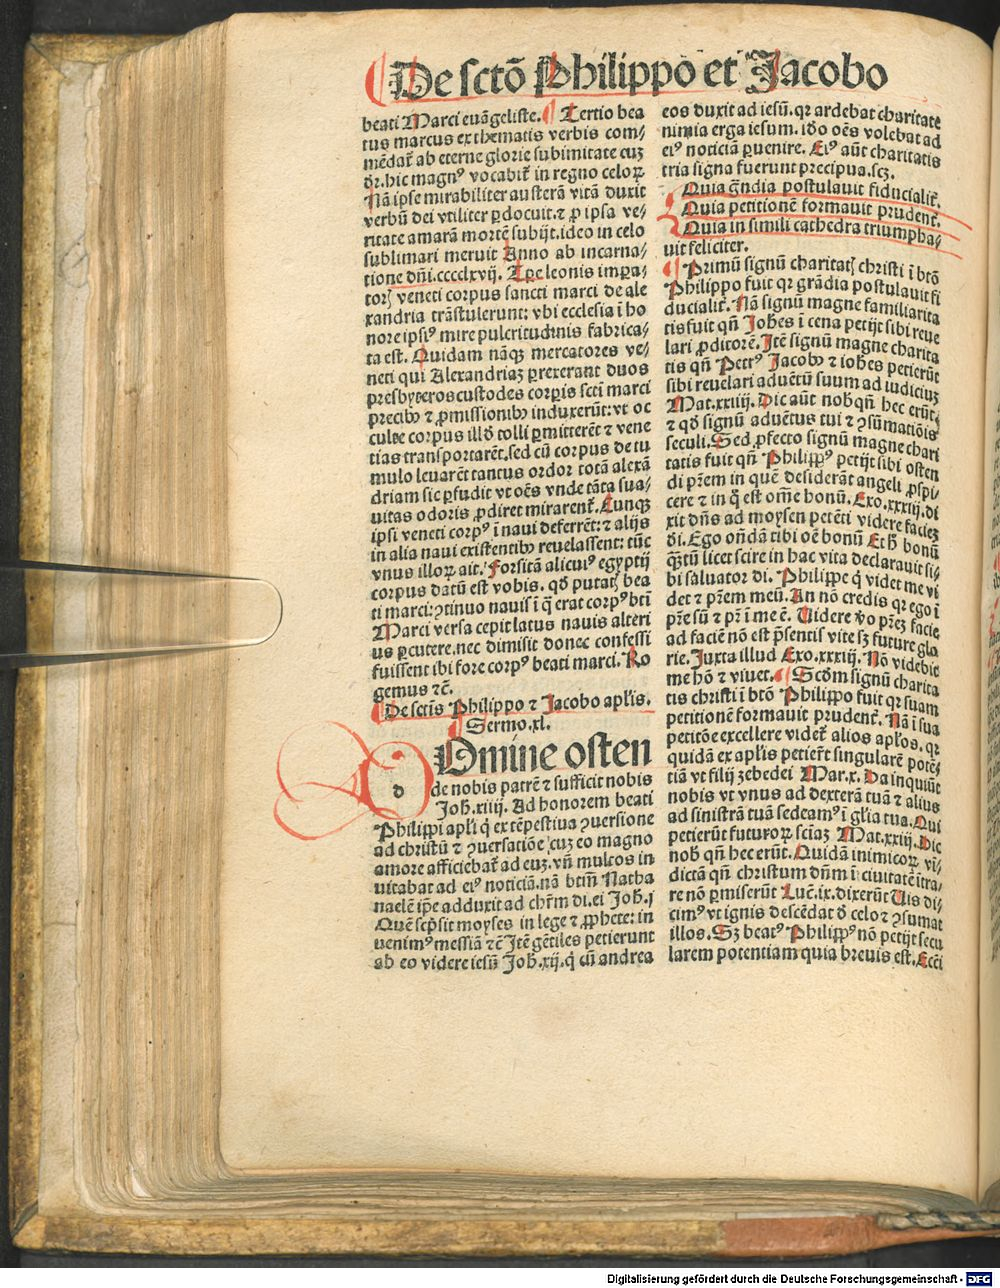 De sctō Philippo et Jacobo
beati Marci euāgeliste. Tertio bea
tus marcus ex thematis verbis com⸗
mēdat᷑ ab eterne glorie sublimitate cuz
dr̄. hic magnꝰ vocabit᷑ in regno celoꝝ
Nā ipse mirabiliter austerā vitā duxit
verbū dei vtiliter ꝑdocuit. ⁊ ꝓ ipsa ve⸗
ritate amarā mortē subijt. ideo in celo
sublimari meruit Anno ab incarna⸗
tione dñi. cccclxvij. Tꝑe leonis imꝑa⸗
toꝝ veneti corpus sancti marci de ale
xandria trāstulerunt: vbi ecclesia ī ho
nore ipsiꝰ mire pulcritudinis fabrica⸗
ta est. Quidam nāqꝫ mercatores ve⸗
neti qui Alexandriaz ꝑrexerant duos
presbyteros custodes corꝑis scti marci
precibꝫ ⁊ ꝓmissionibꝫ induxerūt: vt oc
culte corpus illō tolli ꝑmitterēt ⁊ vene
tias transportarēt. sed cū corpus de tu
mulo leuarēt tantus ordor totā alexā
driam sic ꝑfudit vt oēs vnde tāta sua⸗
uitas odoris ꝓdiret mirarent᷑. Cunqꝫ
ipsi veneti corpꝰ ī naui deferrēt: ⁊ alijs
in alia naui existentibꝫ reuelassent: tūc
vnus illoꝝ ait. Forsitā alicuiꝰ egyptij
corpus datū est vobis. qđ putatꝭ bea
ti marci: ꝯtinuo nauis ī q̄ erat corpꝰ btī
Marci versa cepit latus nauis alteri
us ꝑcutere. nec dimisit donec confessi
fuissent ibi fore corpꝰ beati marci. Ro
gemus ⁊c̄.
De sctis Philippo ⁊ Jacobo apl̄is.
Sermo. xl.
d Omine osten
de nobis patrē ⁊ sufficit nobis
Joh̄. xiiij. Ad honorem beati
Philippi apl̄i q̇ ex tēpestiua ꝯuersione
ad christū ⁊ ꝯuersatiōe cuz eo magno
amore afficiebat᷑ ad euz. vn̄ multos in
uitabat ad eiꝰ noticiā. nā btm̄ Natha
naelē ip̄e adduxit ad chr̄m di. ei Joh̄. j
Quē scp̄sit moyses in lege ⁊ ꝓphete: in
uenimꝰ messiā ⁊c̄ Itē gētiles petierunt
ab eo videre iesū Joh̄. xij. q̇ cū andrea
eos duxit ad iesū. qꝛ ardebat charitate
nimia erga iesum. idō oēs volebat ad
eiꝰ noticiā ꝑuenire. Eiꝰ aūt charitatis
tria signa fuerunt precipua. scꝫ.
Quia grādia postulauit fiducialit᷑.
Quia petitionē formauit prudent᷑.
Quia in simili cathedra triumpha⸗
uit feliciter.
Primū signū charitatꝭ christi ī btō
Philippo fuit qꝛ grādia postulauit fi
ducialit᷑. Nā signū magne familiarita
tis fuit qn̄ Joh̄es ī cena petijt sibi reue
lari ꝓditorē. Itē signū magne charita
tis qn̄ Petrꝰ Jacobꝰ ⁊ ioh̄es petierūt
sibi reuelari aduētū suum ad iudiciuz
Mat. xxiiij. Dic aūt nob̄ qn̄ hec erūt
⁊ qđ signū aduētus tui ⁊ ꝯsūmatiōis
seculi. Sed ꝓfecto signū magne chari
tatis fuit qn̄ Philippꝰ petijt sibi osten
di pr̄em in quē desiderāt angeli ꝓspi⸗
cere ⁊ in q̇ est om̄e bonū. Exo. xxxiij. di
xit dn̄s ad moysen petēti videre faciez
di. Ego on̄dā tibi oē bonū Et h̄ bonū
q̄stū licet scire in hac vita declarauit si⸗
bi saluator di. Philippe q̇ videt me vi
det ⁊ pr̄em meū. An nō credis qꝛ ego ī
pr̄e sū ⁊ pr̄ ī me ē. Uidere v̄o pr̄eꝫ facie
ad faciē nō est p̄sentis vite sꝫ future glo
rie. Juxta illud Exo. xxxiij. Nō videbit
me hō ⁊ viuet. Scd̄m signū charita
tis christi ī btō Philippo fuit qꝛ suam
petitionē formauit prudent᷑. Nā ī sua
petitōe excellere videt᷑ alios apl̄os. qꝛ
quidā ex apl̄is petier̄t singularē potē⸗
tiā vt filij zebedei Mar. x. Da inquiūt
nobis vt vnus ad dexterā tuā ⁊ alius
ad sinistrā tuā sedeamꝰ ī gl̄ia tua. Qui
petierūt futuroꝝ sciaꝫ Mat. xxiij. Dic
nob̄ qn̄ hec erūt. Quidā inimicoꝝ vī⸗
dictā qn̄ christum dn̄m ī ciuitatē ītra⸗
re nō ꝑmiserūt Luc̄. ix. dixerūt Uis di⸗
cimꝰ vt ignis descēdat d̄ celo ⁊ ꝯsumat
illos. Sꝫ beatꝰ Philippꝰ nō petijt secu
larem potentiam quia breuis est. Ecci
Digitalisierung gefördert durch die Deutsche Forschungsgemeinschaft - DFG